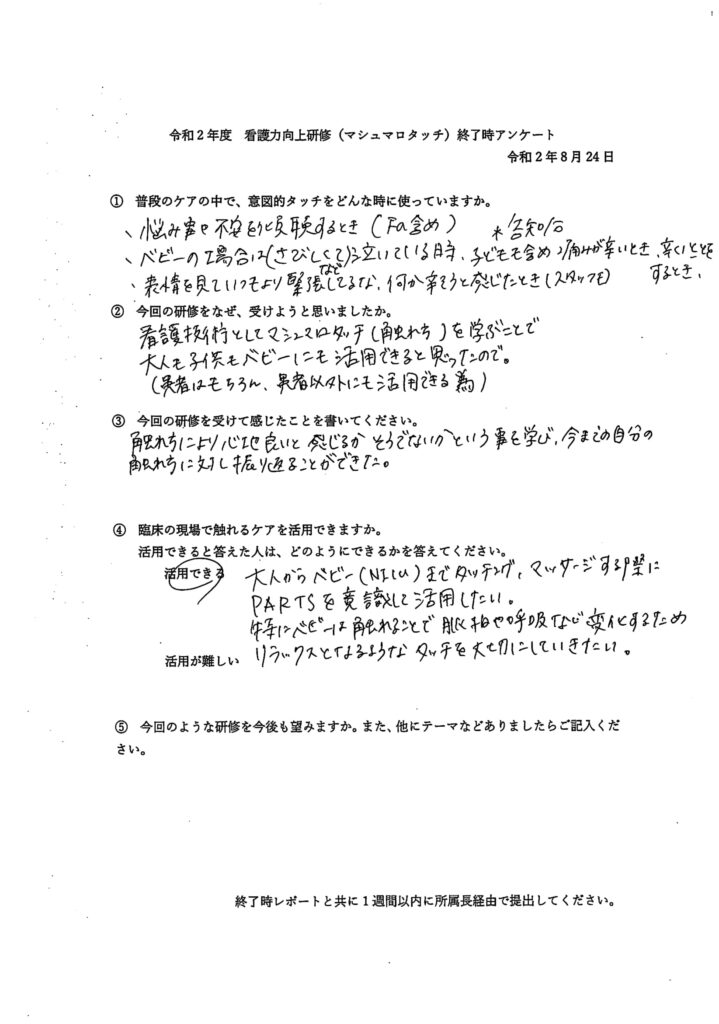 令和２年度　看護力向上研修（マシュマロタッチ）終了時アンケート
令和２年８月24日
①　普段のケアの中で、意図的タッチをどんな時に使っていますか。
、悩み事や不安を傾聴するとき（Fa含め）　＊告知
、ベビーの場合は（さびしくて）泣いている時、子どもも含め痛みが辛いとき、辛いことを
するとき、
、表情を見ていつもより緊張してるな、など何か辛そうと感じたとき（スタッフも）
②　今回の研修をなぜ、受けようと思いましたか。
看護技術としてマシュマロタッチ（触れ方）を学ぶことで
大人も子供もベビーにも活用できると思ったので。
（患者はもちろん、患者以外にも活用できる為）
③　今回の研修を受けて感じたことを書いてください。
触れ方により心地良いと感じるかそうでないかという事を学び、今までの自分の
触れ方に対し振り返ることができた。
④　臨床の現場で触れるケアを活用できますか。
活用できると答えた人は、どのようにできるかを答えてください。
活用できる
大人からベビー（NICU）までタッチング、マッサージする際に
PARTSを意識して活用したい。
特にベビーは触れることで脈拍や呼吸など変化するため
活用が難しい
リラックスとなるようなタッチを大切にしていきたい。
⑤　今回のような研修を今後も望みますか。また、他にテーマなどありましたらご記入くだ
さい。
終了時レポートと共に１週間以内に所属長経由で提出してください。